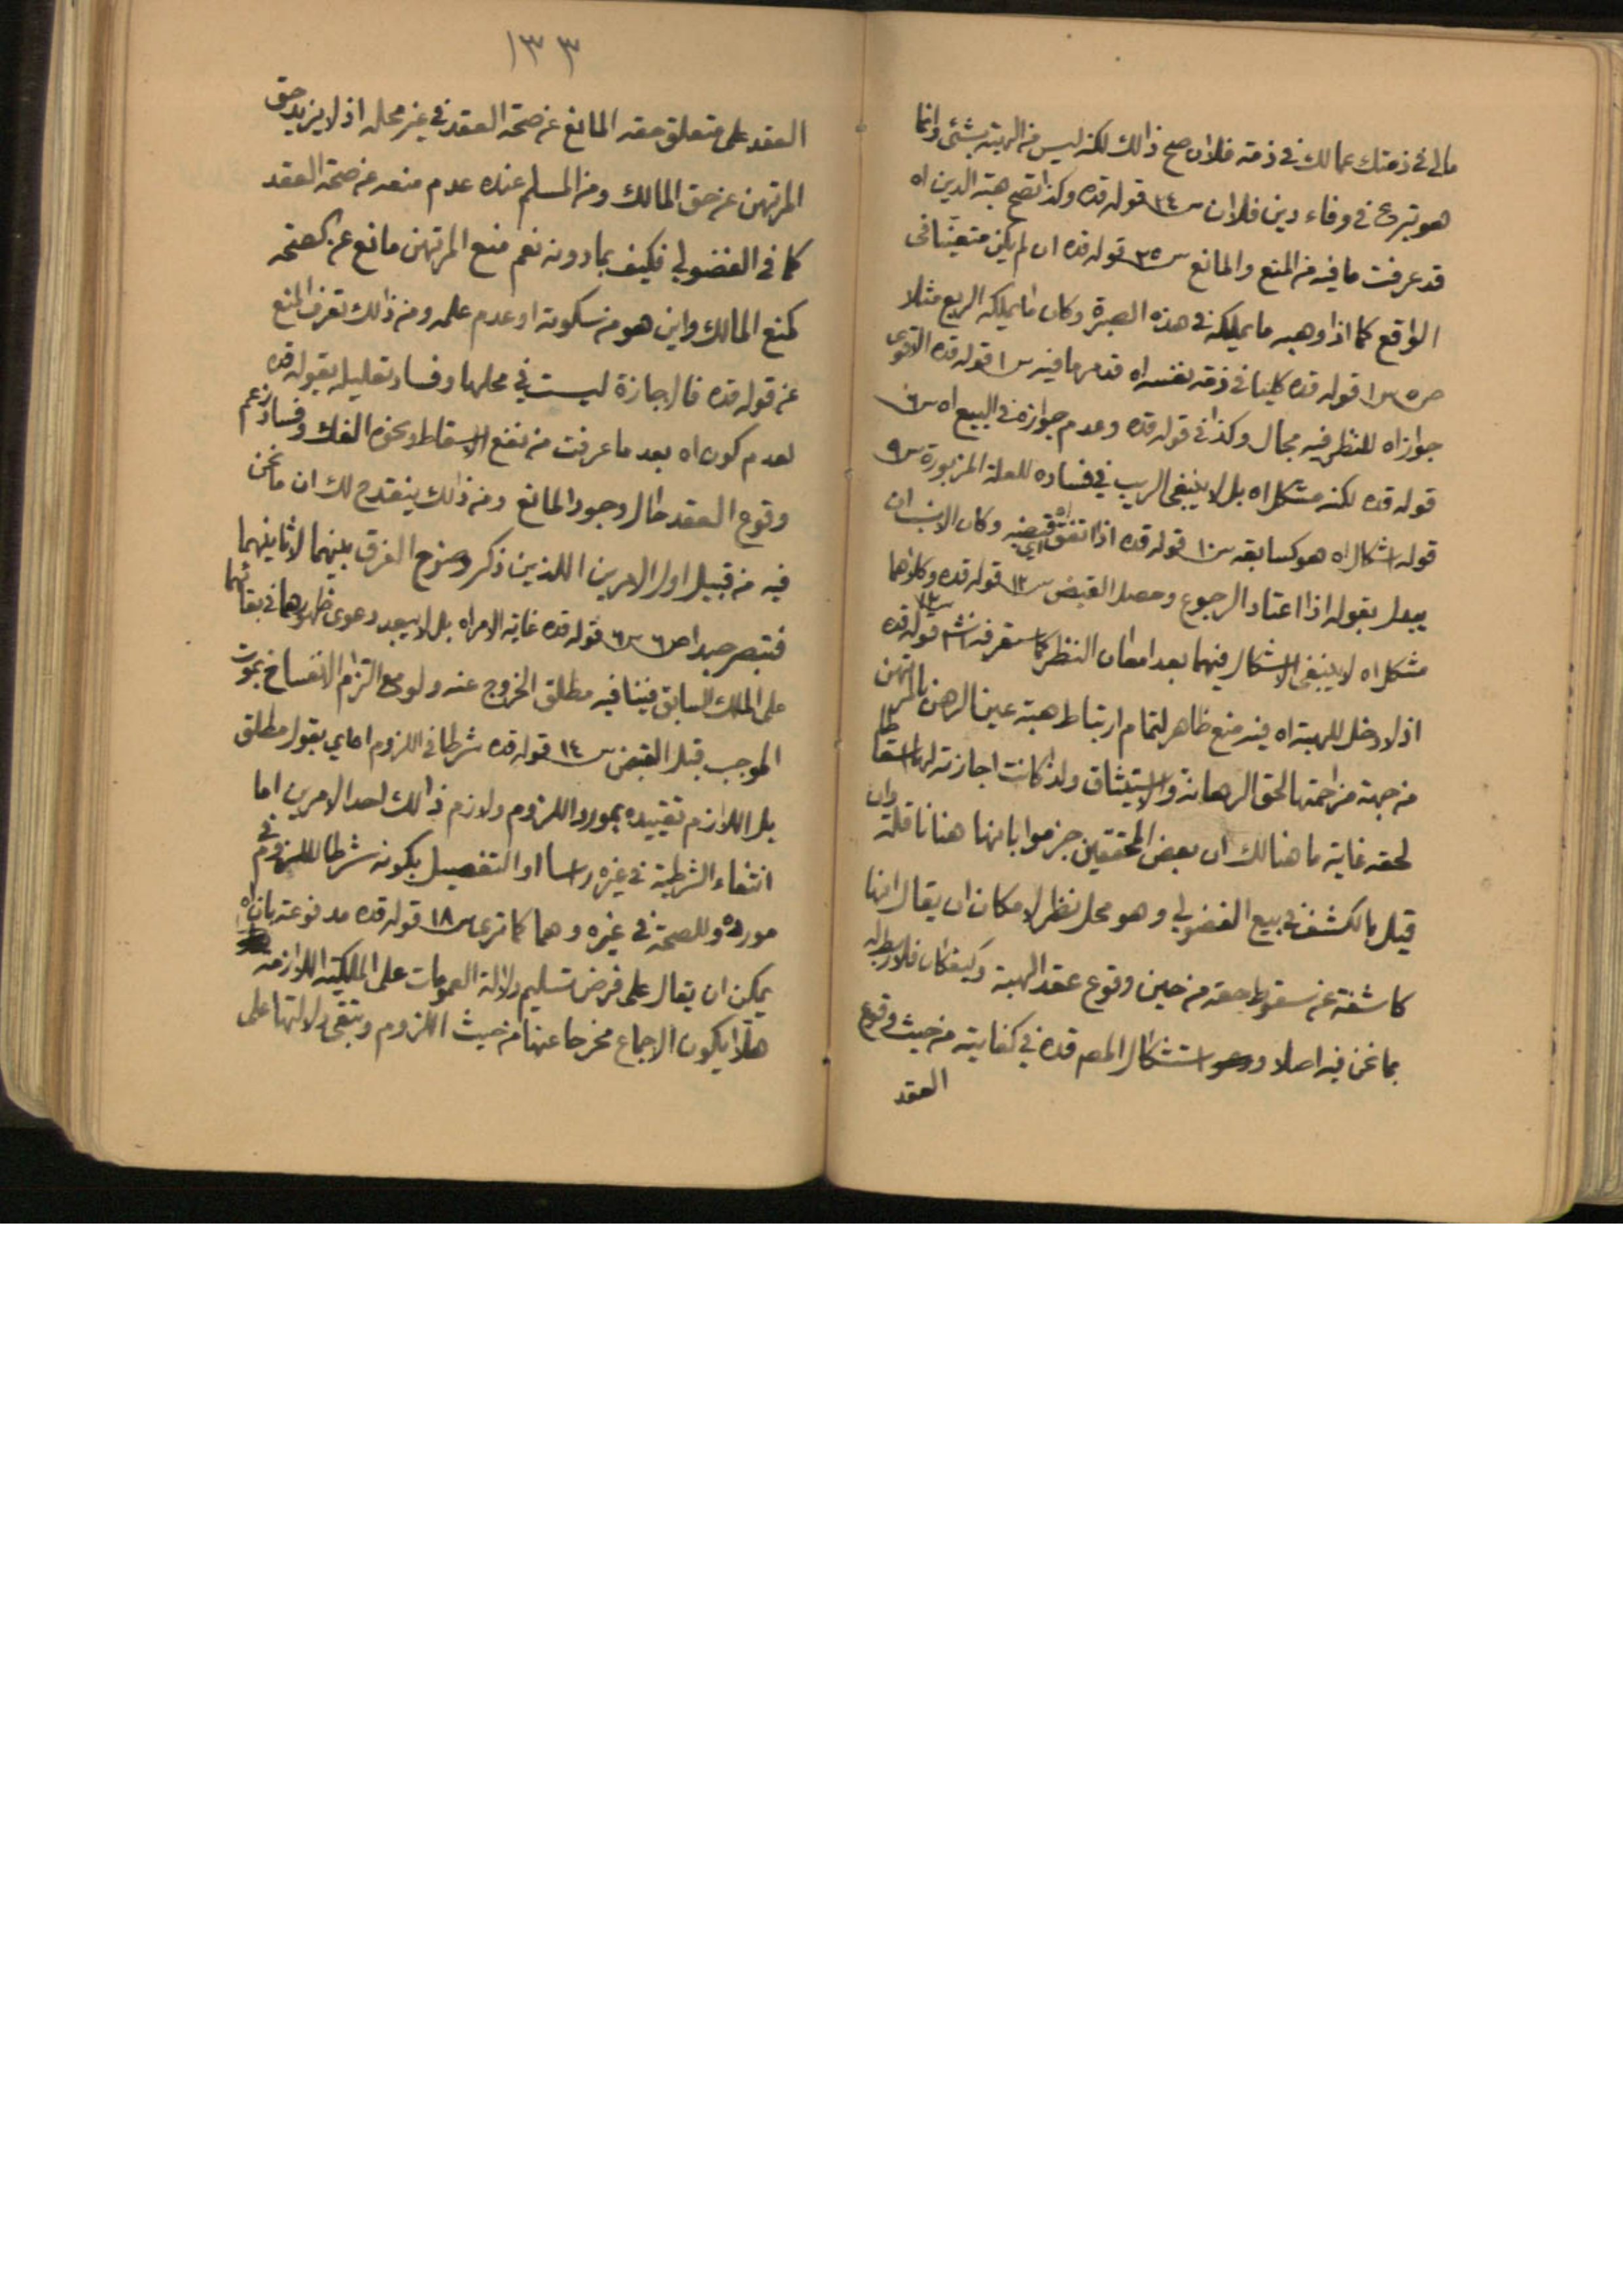 مالى فى ذمتك عمالك فى ذمة فلان صح ذالك لكنه ليس من الهبة بشئ وانما
هو تبرع فى وفاء دين فلان س٣٤ قوله قده وكذا تصح هبة الدين اه
قد عرفت ما فيه من المنع والمانع س٣٥ قوله قده ان لم يكن متعينا فى
الواقع كما اذا وهبه ما يملكه فى هذه الصبرة وكان ما يملكه الربع مثلا
ص٥ س١ قوله قده كليا فى ذمة نفسه اه قد مر ما فيه س١ قوله قده الاقوى
جوازاه للنظر فيه مجال وكذا فى قوله قده وعدم جوازه فى البيع اه س٦
قوله قده لكنه مشكل اه بل لا ينبغى الريب فى فساده للعلة المزبورة س٩
قوله اشكال اه هو كسابقه س١٠ قوله قده اذا اتفق قبضه اه وكان الانسب ان
يبدل بقوله اذا اعتاد الرجوع وحصل القبض س١٢ قوله قده وكلاهما
مشكل اه لا ينبغى الاشكال فيهما بعد امعان النظر كما ستعرفه قوله قده
اذ لا دخل للهبة اه فيه منع ظاهر لتمام ارتباط هبة عين الرهن بالمرتهن
من جهة مزاحمتها لحق الرهانة والاستيثاق ولذا كانت اجازته لها اسقاطا
لحقه غاية ما هنالك ان بعض المحققين جزموا بانها هنا ناقلة وان
قيل بالكشف فى بيع الفضولي وهو محل نظر لامكان ان يقال انها
كاشفة عن سقوط حقه من حين وقوع عقد الهبة وكيف كان فلا ربط له
بما نحن فيه اصلا و استشكال المصم قده فى كفايته من حيث وقوع
العقد
١٣٣
العقد على متعلق حقه المانع عن صحة العقد فى غير محله اذ لا يزيد حق
المرتهن عن حق المالك ومن المسلم عنده عدم منعه عن صحة العقد
كما فى الفضولي فكيف بما دونه نعم منع المرتهن مانع عن الصحة
كمنع المالك واين هو من سكوته او عدم علمه ومن ذالك تعرف المنع
عن قوله قده فالاجازة ليست فى محلها وفساد تعليله بقوله قده
لعدم كون اه بعد ما عرفت من نفع الاسقاط ونحوه الفك وفساد زعم
وقوع العقد حال وجود المانع ومن ذالك ينقدح لك ان ما نحن
فيه من قبيل اول الامرين اللذين ذكر وضوح الفرق بينهما لا ثانيهما
فتبصر جيدا ص٦ س٦ قوله قده غاية الامر اه بل لا يبعد دعوى ظهورهما فى بقائهما
على الملك السابق فينافيه مطلق الخروج عنه ولو مع التزام الانفساخ بموت
الموجب قبل القبض س١٤ قوله قده شرطا فى اللزوم اه اى بقول مطلق
بل اللازم تقييده بمورد اللزوم ولازم ذالك احد الامرين اما
انتفاء الشرطية فى غيره راسا او التفصيل بكونه شرطا للزوم فى
مورده وللصحة فى غيره وهما كما ترى س١٨ قوله قده مدفوعة بان اه
يمكن ان يقال على فرض تسليم دلالة العمومات على الملكية اللازمة
هلا يكون الاجماع مخرجا عنها من حيث اللزوم وتبقى دلالتها على